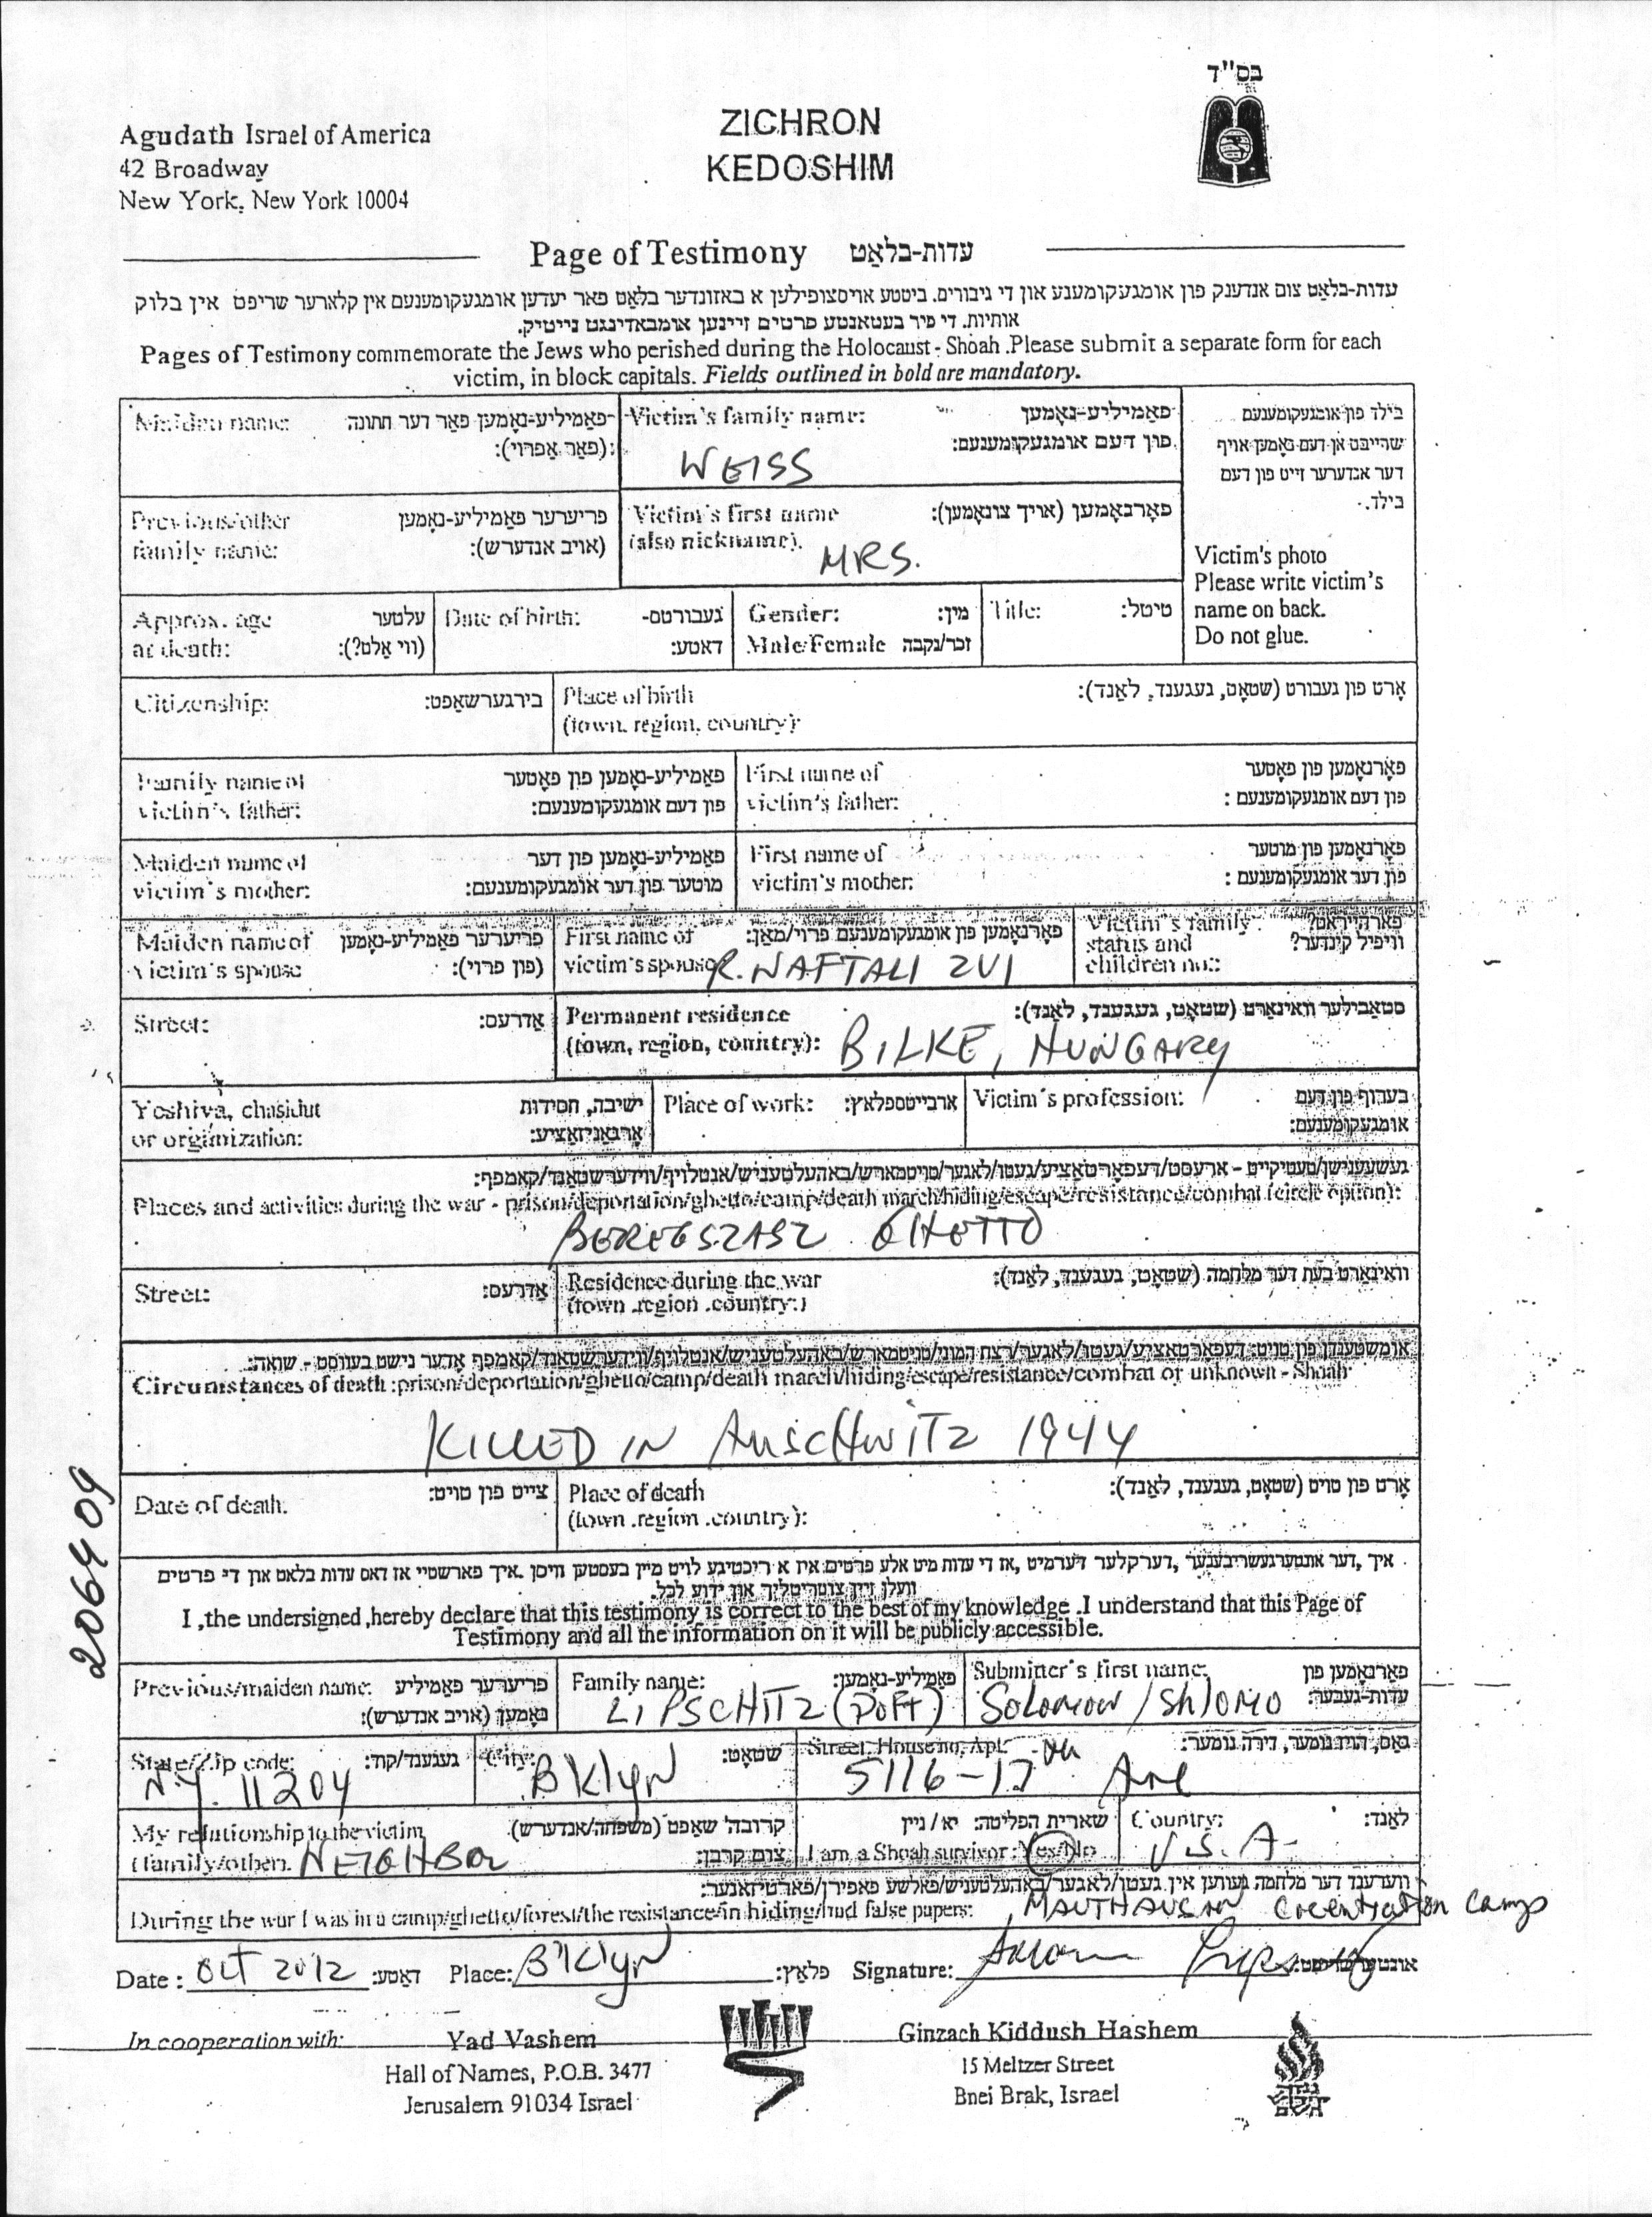 בס"ד
Agudath Israel of America
42 Broadway
New York, New York 10004
ZICHRON
KEDOSHIM
Page of Testimony עדות-בלאַט
עדות-בלאַט צום אנדענק פון אומגעקומענע און די גיבורים. ביטטע אויסצופילען א באזונדער בלאַט פאר יעדען אומגעקומענעם אין קלארער שריפט אין בלוק
אותיות. די פיר בעטאנטע פרטים זיינען אומבאדינגט נייטיק.
Pages of Testimony commemorate the Jews who perished during the Holocaust - Shoah .Please submit a separate form for each
victim, in block capitals. Fields outlined in bold are mandatory.
Maiden name: פאַמיליע-נאָמען פאַר דער חתונה
(פאַר אַפרוי):
Victim's family name: פאַמיליע-נאָמען
פון דעם אומגעקומענעם:
WEISS
Previous/other פריערער פאַמיליע-נאָמען
family name: (אויב אנדערש):
Victim's first name פאָרנאָמען (אויך צונאָמען):
(also nickname).
MRS.
בילד פון אומגעקומענעם
שרייבט אן דעם נאָמען אויף
דער אנדערער זייט פון דעם
בילד.
Victim's photo
Please write victim's
name on back.
Do not glue.
Approx. age עלטער
at death: (ווי אַלט?):
Date of birth: געבורטס-
דאטע:
Gender: מין:
Male/Female זכר/נקבה
Title: טיטל:
Citizenship: בירגערשאַפט:
Place of birth אָרט פון געבורט (שטאָט, געגענד, לאַנד):
(town, region, country):
Family name of פאַמיליע-נאָמען פון פאָטער
victim's father: פון דעם אומגעקומענעם:
First name of פאָרנאָמען פון פאָטער
victim's father: פון דעם אומגעקומענעם :
Maiden name of פאַמיליע-נאָמען פון דער
victim's mother: מוטער פון דער אומגעקומענעם:
First name of פאָרנאָמען פון מוטער
victim's mother: פון דער אומגעקומענעם :
Maiden name of פריערער פאַמיליע-נאָמען
victim's spouse (פון פרוי):
First name of פאָרנאָמען פון אומגעקומענעם פרוי/מאַן:
victim's spouse R. NAFTALI ZVI
Victim's family פארהייראט?
status and וויפיל קינדער?
children no.:
Street: אַדרעס:
Permanent residence סטאַבילער וואוינאָרט (שטאָט, געגענד, לאַנד):
(town, region, country): BILKE, HUNGARY
Yeshiva, chasidut ישיבה, חסידות
or organization: אָרגאַניזאַציע:
Place of work: ארבייטספלאץ:
Victim's profession: בערוף פון דעם
אומגעקומענעם:
געשעענישן/טעטיקייט - ארעסט/דעפאָרטאַציע/געטו/לאגער/טויטמארש/באהעלטעניש/אנטלויף/ווידערשטאַנד/קאמפף:
Places and activities during the war - prison/deportation/ghetto/camp/death march/hiding/escape/resistance/combat (circle option):
BEREGSZASZ GHETTO
Street: אַדרעס:
Residence during the war וואוינאָרט בעת דער מלחמה (שטאָט, געגענד, לאַנד):
(town .region .country:)
אומשטענדן פון טויט: דעפאָרטאַציע/געטו/לאגער/רצח המוני/טויטמארש/באהעלטעניש/אנטלויף/ווידערשטאַנד/קאמפף אָדער נישט בעווסט - שואה:
Circumstances of death :prison/deportation/ghetto/camp/death march/hiding/escape/resistance/combat or unknown - Shoah
KILLED IN AUSCHWITZ 1944
Date of death: צייט פון טויט:
Place of death אָרט פון טויט (שטאָט, געגענד, לאַנד):
(town .region .country):
איך, דער אונטערגעשריבענער, דערקלער דערמיט, אז די עדות מיט אלע פרטים אין א ריכטיגע לויט מיין בעסטען וויסן .איך פארשטיי אז דאס עדות בלאט און די פרטים
וועלן זיין צוטריטליך און ידוע לכל.
I ,the undersigned ,hereby declare that this testimony is correct to the best of my knowledge .I understand that this Page of
Testimony and all the information on it will be publicly accessible.
Previous/maiden name: פריערער פאַמיליע
נאָמען (אויב אנדערש):
Family name: פאַמיליע-נאָמען:
LIPSCHITZ (POFT)
Submitter's first name: פאָרנאָמען פון
עדות-געבער:
Solomon / Shlomo
State/Zip code: געגענד/קוד:
N.Y. 11204
City: שטאָט:
BKlyN
Street, House no, Apt. גאַס, הויז נומער, דירה נומער:
5116-17th Ave
My relationship to the victim קרובה' שאַפט (משפחה/אנדערש)
(family/other). NEIGHBOR צום קרבן:
שארית הפליטה: יא / ניין
I am a Shoah survivor: Yes/No
Country: לאַנד:
U.S.A.
ווערענד דער מלחמה געווען אין געטו/לאגער/באַהעלטעניש/פאלשע פאפירן/פארטיזאנער:
During the war I was in a camp/ghetto/forest/the resistance/in hiding/had false papers: MAUTHAUSAN Cocentration Camp
Date : Oct 2012 דאַטע: Place: B'Klyn פלאַץ: Signature:
In cooperation with: Yad Vashem
Hall of Names, P.O.B. 3477
Jerusalem 91034 Israel
Ginzach Kiddush Hashem
15 Meltzer Street
Bnei Brak, Israel
206409